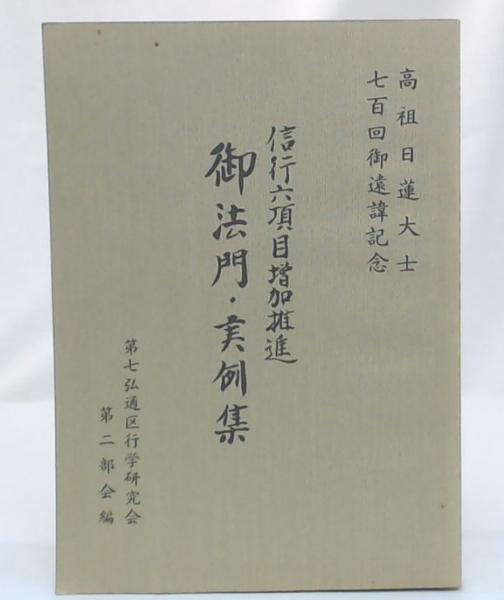 高祖日蓮大士
七百回御遠諱記念
信行六項目増加推進
御法門・実例集
第七弘通区行学研究会
第二部会編